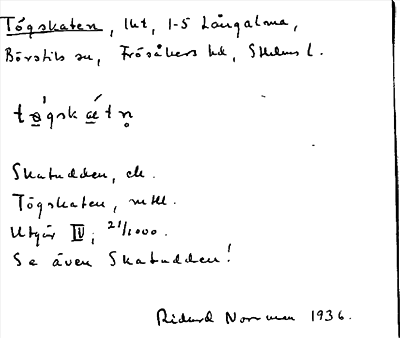 Tögskaten, lht, 1-5 Långalma,
Börstils sn, Frösåkers hd, Sthlms l.
Skatudden, ek.
Tögskaten, mtll.
Utgör IV, 21/1000.
Se även Skatudden!
Rickard Norrman 1936.